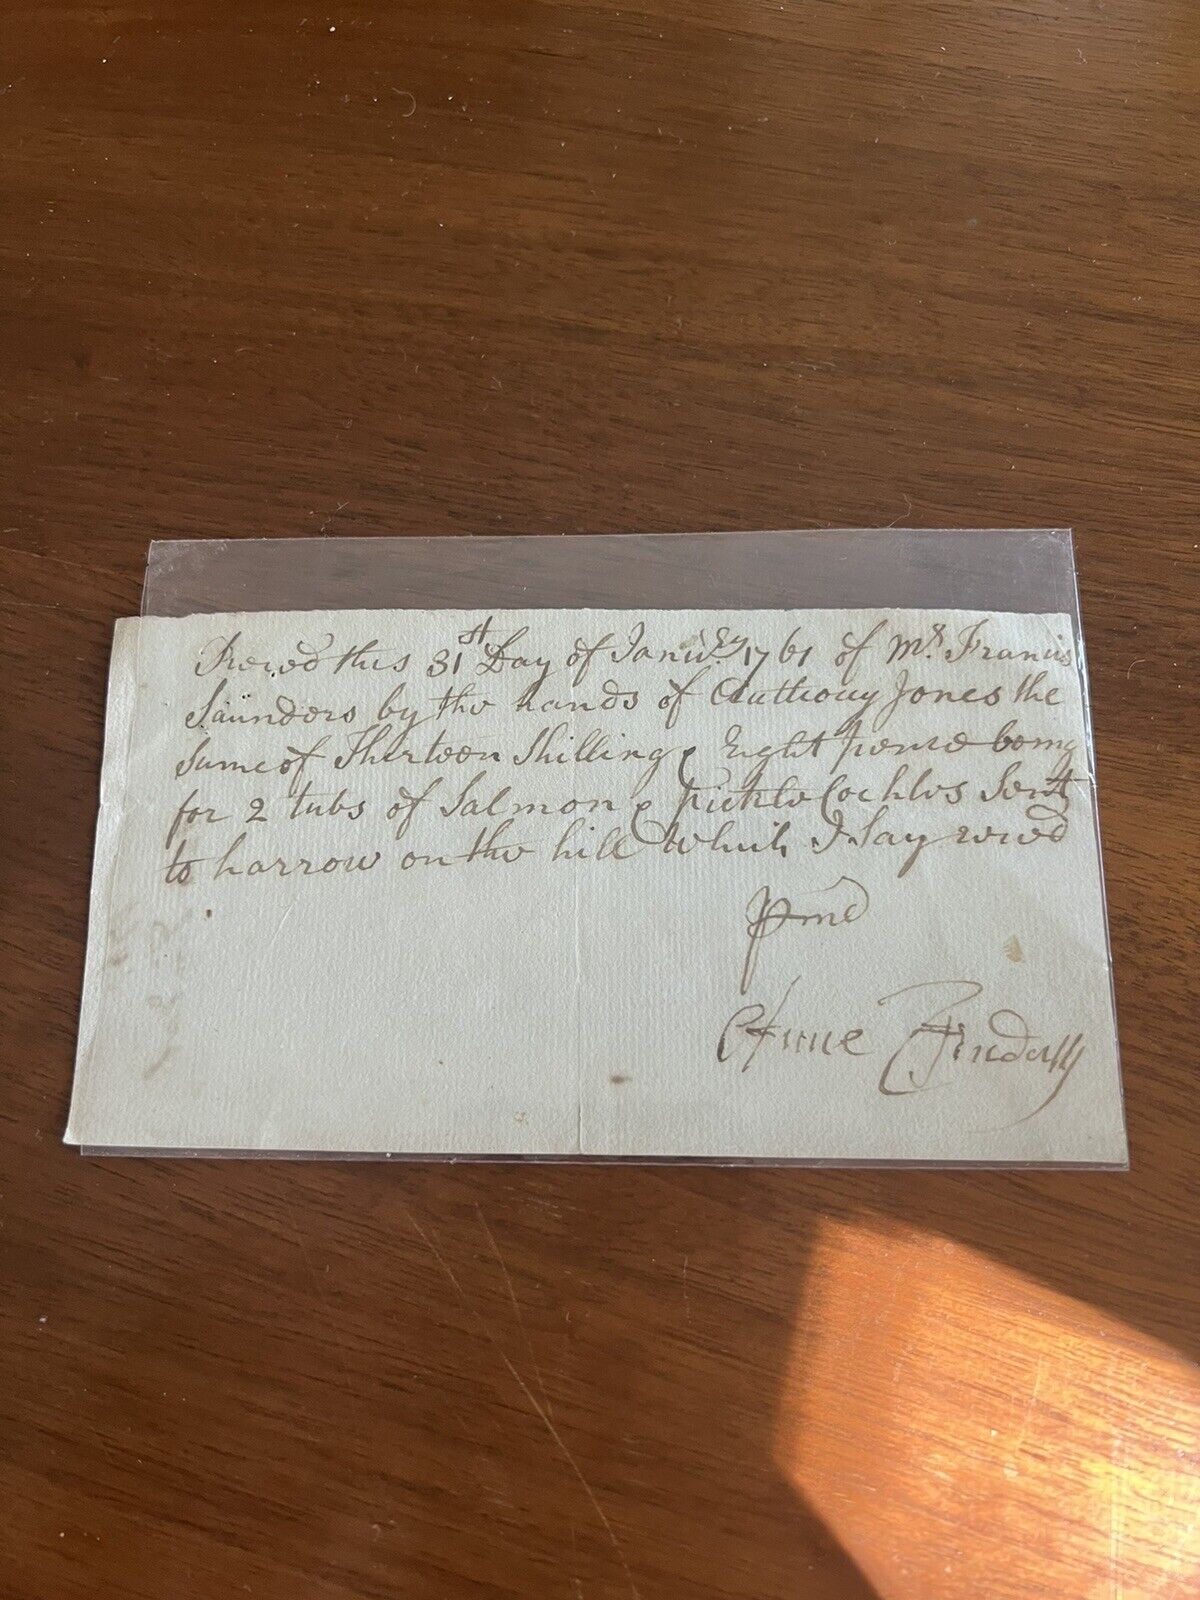 Recd this 31st Day of Janu.ry 1761 of Mr. Francis
Saunders by the hands of Anthony Jones the
Sume of Thirteen Shillings Eight pence being
for 2 tubs of Salmon & Pickle Cockles Sent
to harrow on the hill Which I Say recd
p me
Anne